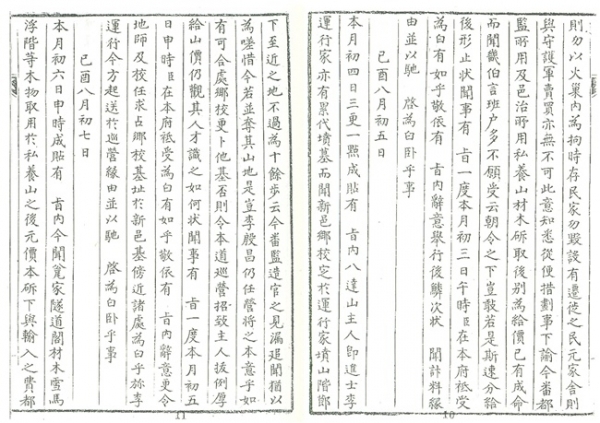 則勿以火巢內為拘時存民家勿毀設有遷徙之民元家舍則
與守護軍賣買亦無不可此意知悉從便措劃事下諭今番都
監所用及邑治所用私養山材木斫取後別為給價已有成命
而聞畿伯言班戶多不願受云朝令之下豈敢若是斯速分給
後形止狀聞事有 旨一度本月初三日午時臣在本府祗受
為白有如乎敬依有 旨內辭意舉行後鱗次狀 聞計料緣
由並以馳 啓為白臥乎事
己酉八月初五日
本月初四日三更一點成貼有 旨內八達山主人即進士李
運行家亦有累代墳墓而聞新邑鄉校定於運行家墳山階
10
下至近之地不過為十餘步云今番監造官之見漏追聞猶以
為嗟惜今若並奪其山地是豈李殷昌仍任營將之本意乎如
有可合處鄉校更卜他基否則令本道巡營招致主人拔例厚
給山價仍觀其人才識之如何狀聞事有 旨一度本月初五
日申時臣在本府祗受為白有如乎敬依有 旨內辭意更令
地師及校任求占鄉校基址於新邑基傍近諸處為白乎旀李
運行今方起送於巡營緣由並以馳 啓為白臥乎事
己酉八月初七日
本月初六日申時成貼有 旨內今聞家隧道閣材木雪馬
浮階等木物取用於私養山之後元價本斫下與輸入之費都
11